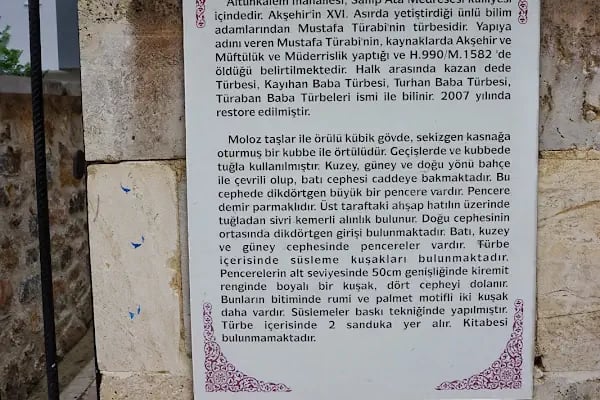 Altunkalem mahallesi, Sahip Ata Medresesi külliyesi
içindedir. Akşehir'in XVI. Asırda yetiştirdiği ünlü bilim
adamlarından Mustafa Türabi'nin türbesidir. Yapıya
adını veren Mustafa Türabi'nin, kaynaklarda Akşehir ve
Müftülük ve Müderrislik yaptığı ve H.990/M.1582 'de
öldüğü belirtilmektedir. Halk arasında kazan dede
Türbesi, Kayıhan Baba Türbesi, Turhan Baba Türbesi,
Türaban Baba Türbeleri ismi ile bilinir. 2007 yılında
restore edilmiştir.
Moloz taşlar ile örülü kübik gövde, sekizgen kasnağa
oturmuş bir kubbe ile örtülüdür. Geçişlerde ve kubbede
tuğla kullanılmıştır. Kuzey, güney ve doğu yönü bahçe
ile çevrili olup, batı cephesi caddeye bakmaktadır. Bu
cephede dikdörtgen büyük bir pencere vardır. Pencere
demir parmaklıdır. Üst taraftaki ahşap hatılın üzerinde
tuğladan sivri kemerli alınlık bulunur. Doğu cephesinin
ortasında dikdörtgen girişi bulunmaktadır. Batı, kuzey
ve güney cephesinde pencereler vardır. Türbe
içerisinde süsleme kuşakları bulunmaktadır.
Pencerelerin alt seviyesinde 50cm genişliğinde kiremit
renginde boyalı bir kuşak, dört cepheyi dolanır.
Bunların bitiminde rumi ve palmet motifli iki kuşak
daha vardır. Süslemeler baskı tekniğinde yapılmıştır.
Türbe içerisinde 2 sanduka yer alır. Kitabesi
bulunmamaktadır.